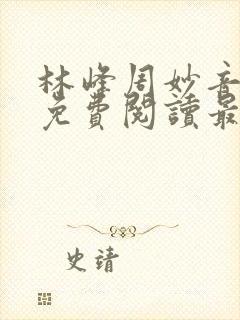 林峰周妙音
免費閱讀最
史靖